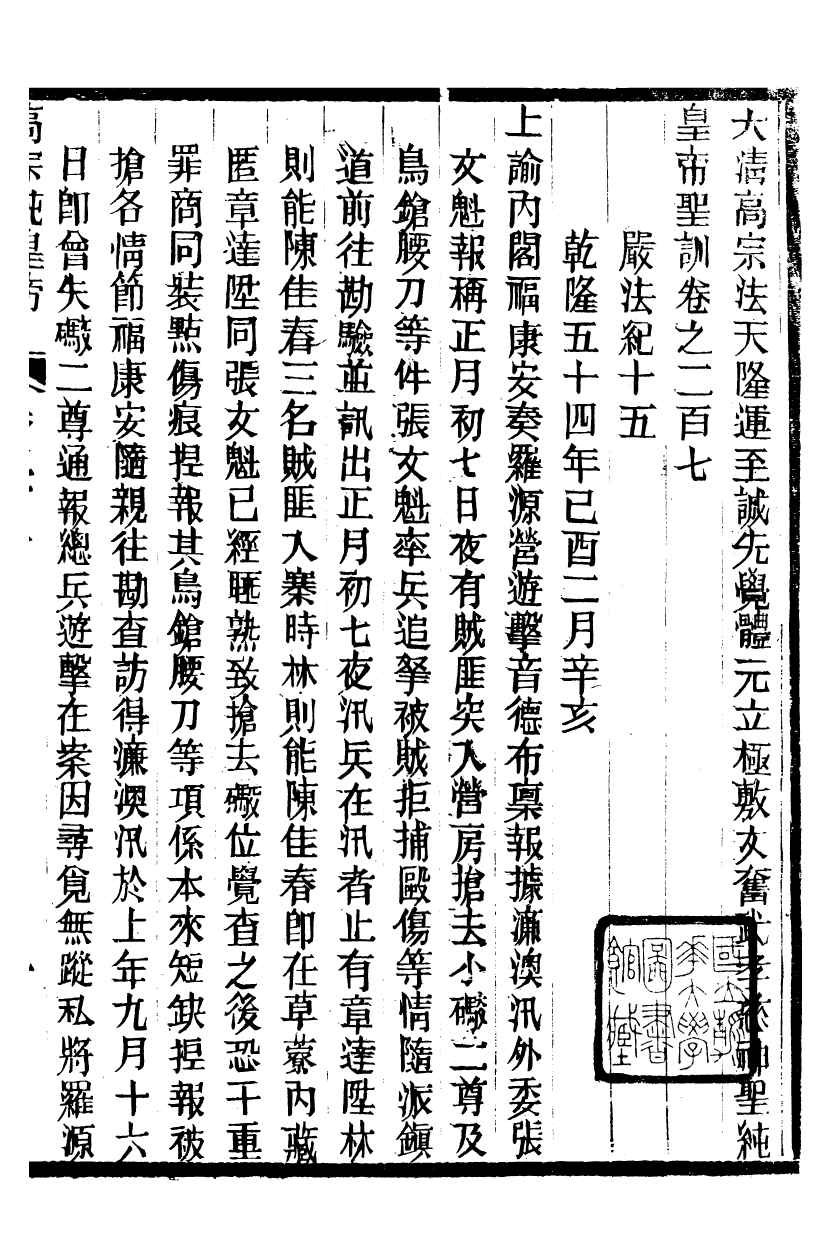 大淸高宗法天隆運至誠先覺體元立極敷文奮武孝慈神聖純
皇帝聖訓卷之二百七
嚴法紀十五
乾隆五十四年己酉二月辛亥
上諭內閣福康安奏羅源營遊擊音德布稟報據濂澳汛外委張
文魁報稱正月初七日夜有賊匪突入營房搶去小礮二尊及
鳥鎗腰刀等件張文魁率兵追拏被賊拒捕毆傷等情隨派鎭
道前往勘驗並訊出正月初七夜汛兵在汛者止有章達陞林
則能陳佳春三名賊匪入寨時林則能陳佳春卽在草藔內藏
匿章達陞同張文魁已經睡熟致搶去礮位覺查之後恐干重
罪商同裝點傷痕捏報其鳥鎗腰刀等項係本來短缺捏報被
搶各情節福康安隨親往勘查訪得濂澳汛於上年九月十六
日卽曾失礮二尊通報總兵遊擊在案因尋覓無蹤私將羅源
高宗純皇帝
國立清華大學圖書館藏